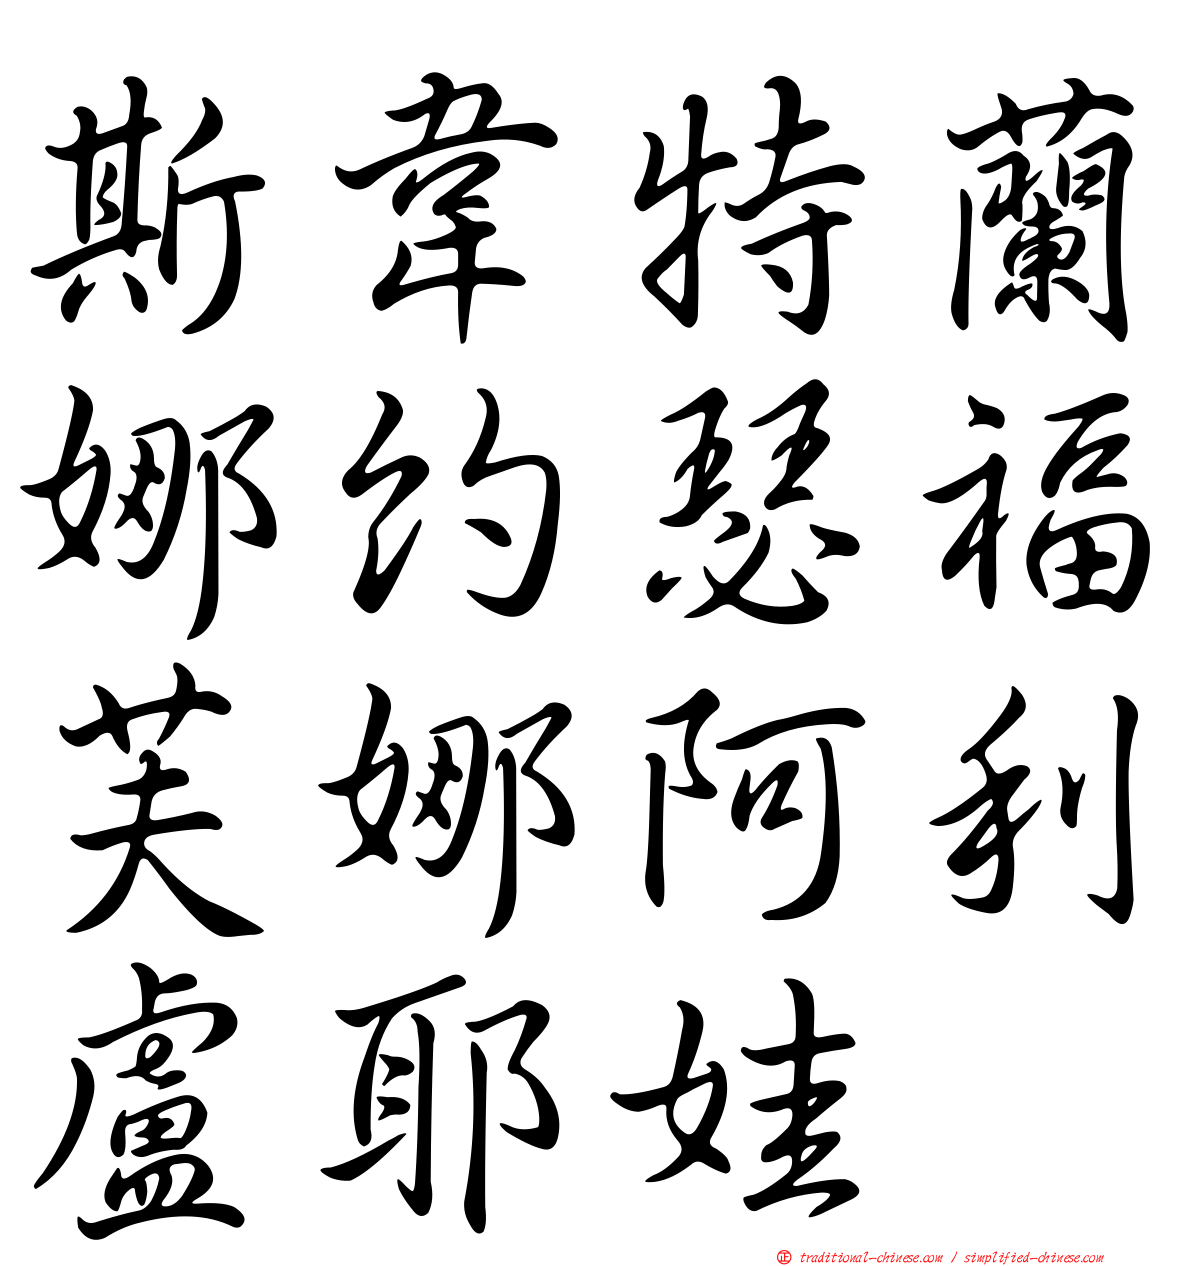 斯韋特蘭
娜約瑟福
芙娜阿利
盧耶娃
正 traditional-chinese.com / simplified-chinese.com